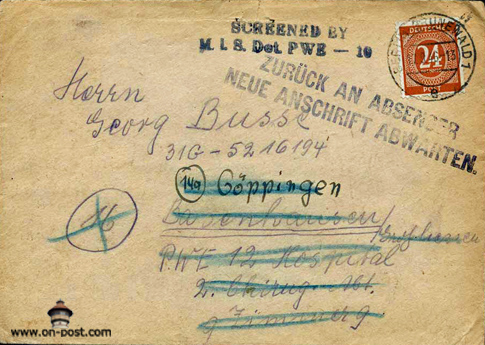 SCREENED BY
M.I.S. Det. PWE — 10
DEUTSCHE
24
POST
ZURÜCK AN ABSENDER
NEUE ANSCHRIFT ABWARTEN.
Herrn
Georg Busse
31G-5216194
14a Göppingen
16
PWE 12 Hospital
2. Chirug. Abt.
www.on-post.com